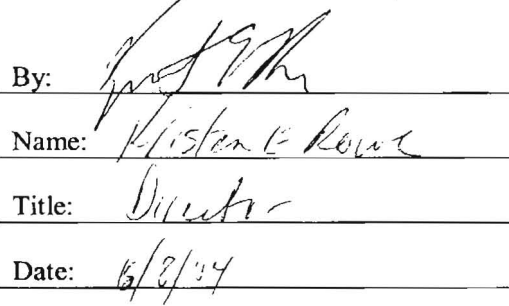 By:
Name: Kristen E Rowe
Title: Director
Date: